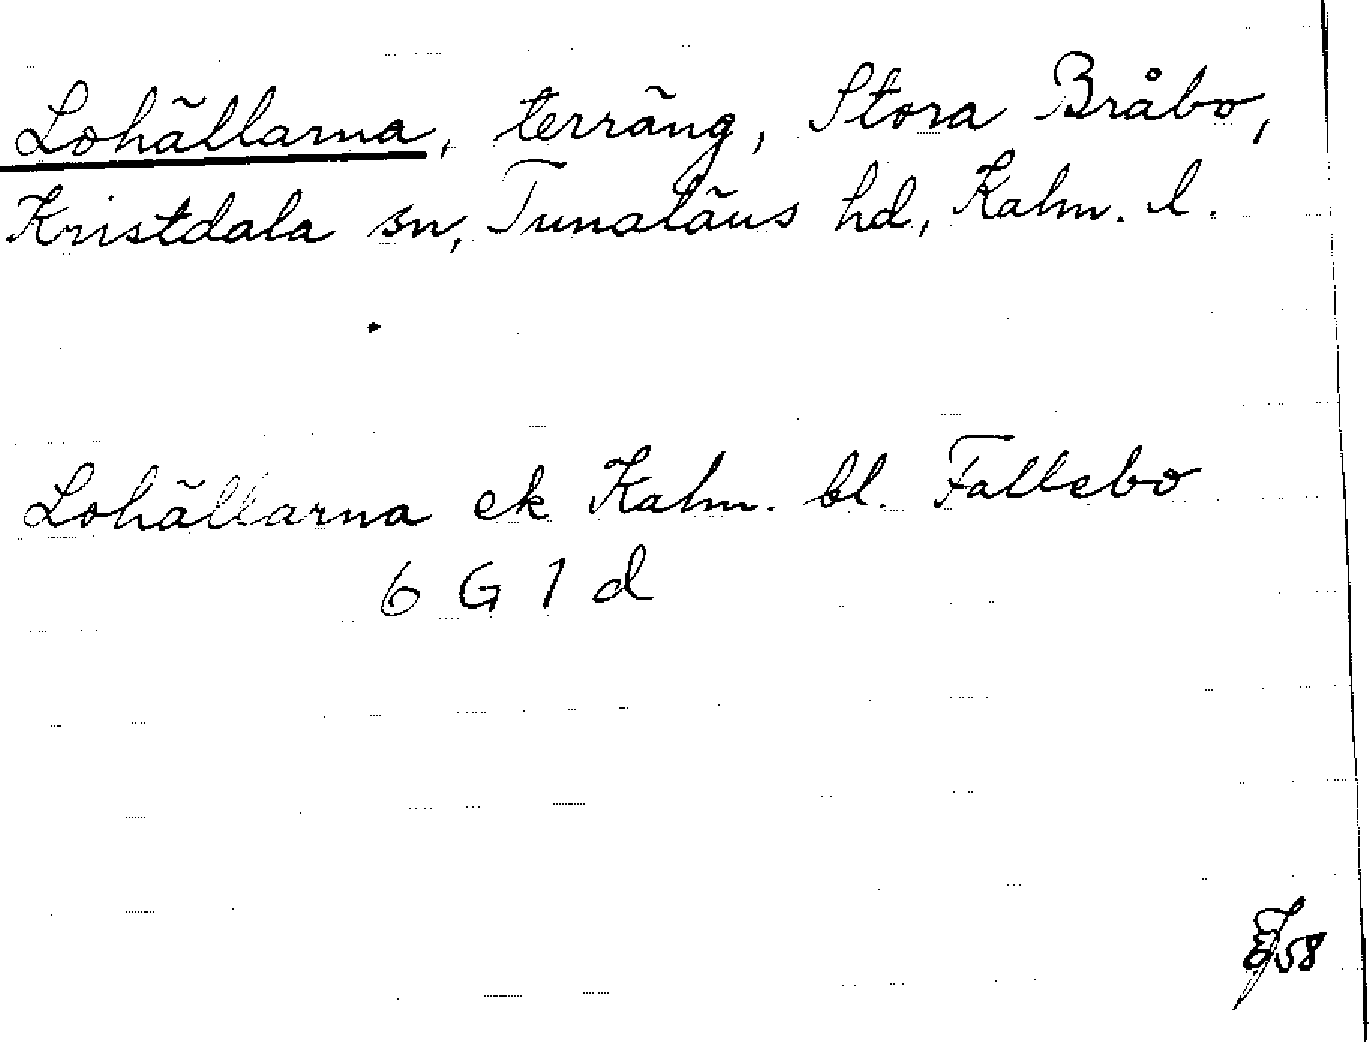 Lohällarna, terräng, Stora Bråbo,
Kristdala sn, Tunaläns hd, Kalm. l.
Lohällarna ek Kalm. bl. Fallebo
6 G 1 d
58